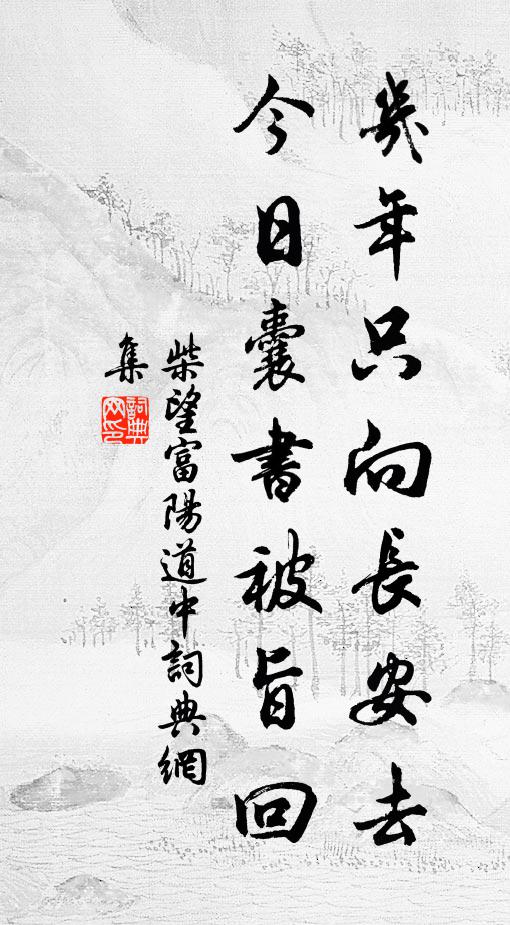 幾年只向長安去
今日囊書被旨回
柴望富陽道中詞典網
集
詞典
网印